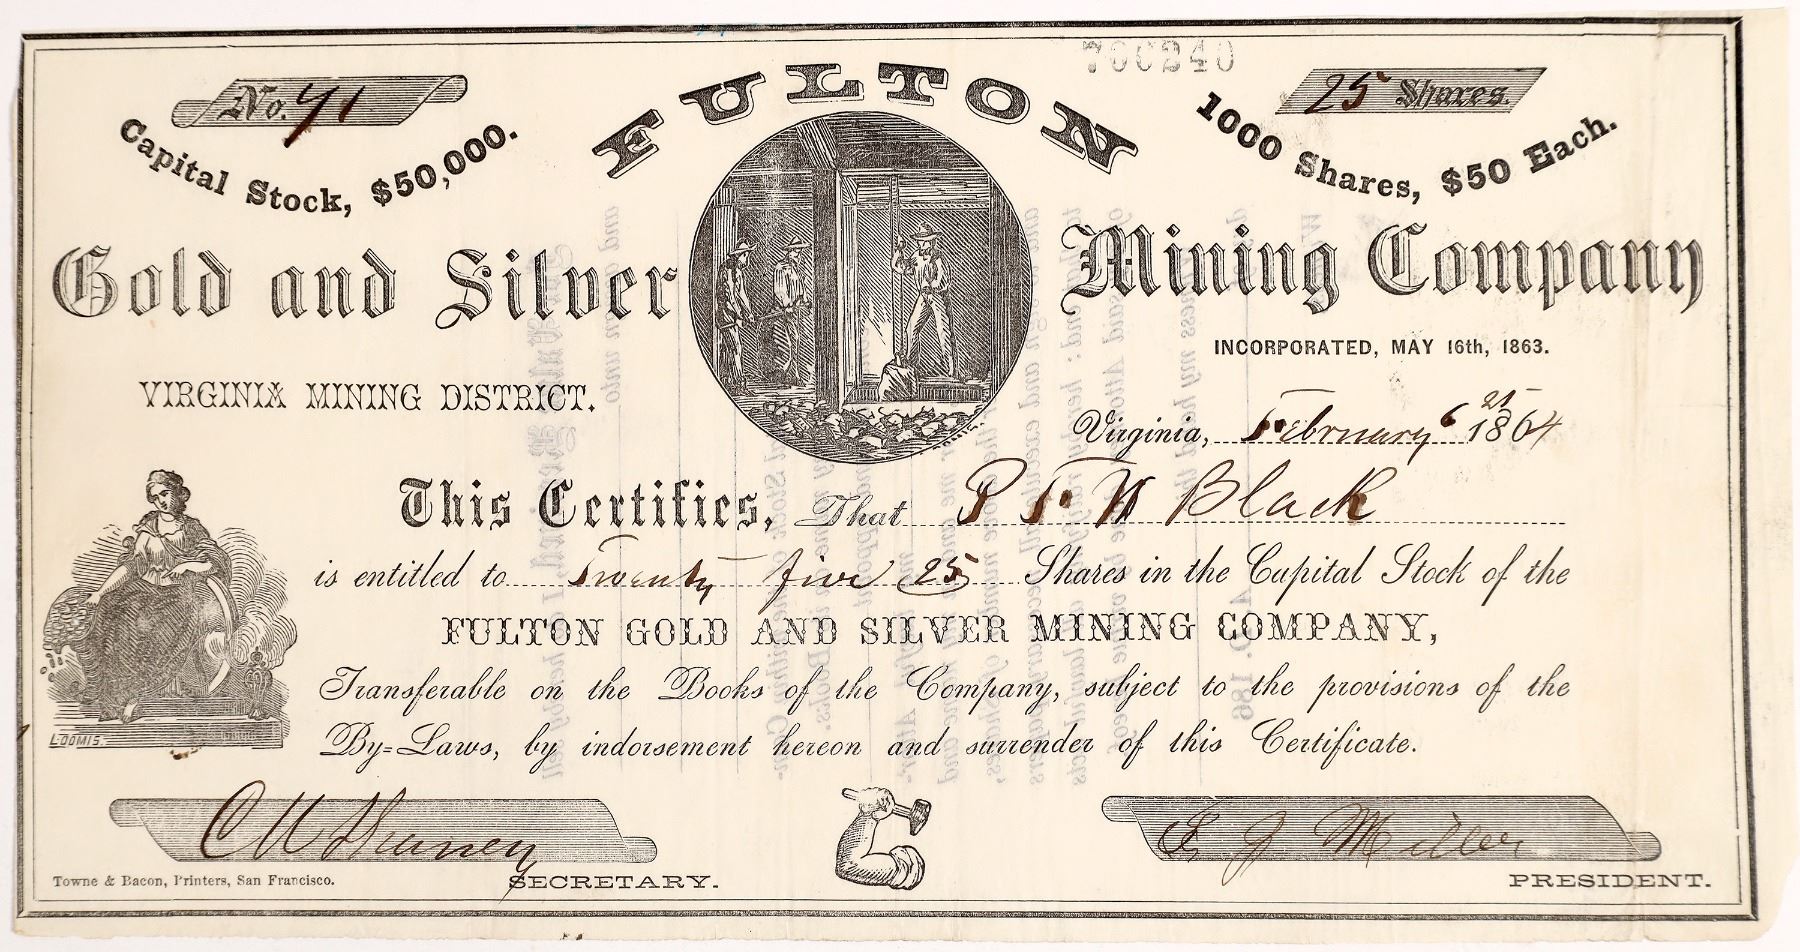 700240
No. 71
25 Shares.
Capital Stock, $50,000.
FULTON
1000 Shares, $50 Each.
Gold and Silver Mining Company
INCORPORATED, MAY 16th, 1863.
VIRGINIA MINING DISTRICT.
Virginia, February 6 1864
25
This Certifies, That P F W Black
is entitled to Twenty five 25 Shares in the Capital Stock of the
FULTON GOLD AND SILVER MINING COMPANY,
Transferable on the Books of the Company, subject to the provisions of the
By=Laws, by indorsement hereon and surrender of this Certificate.
LOOMIS.
C W
Miller
Towne & Bacon, Printers, San Francisco.
SECRETARY.
PRESIDENT.